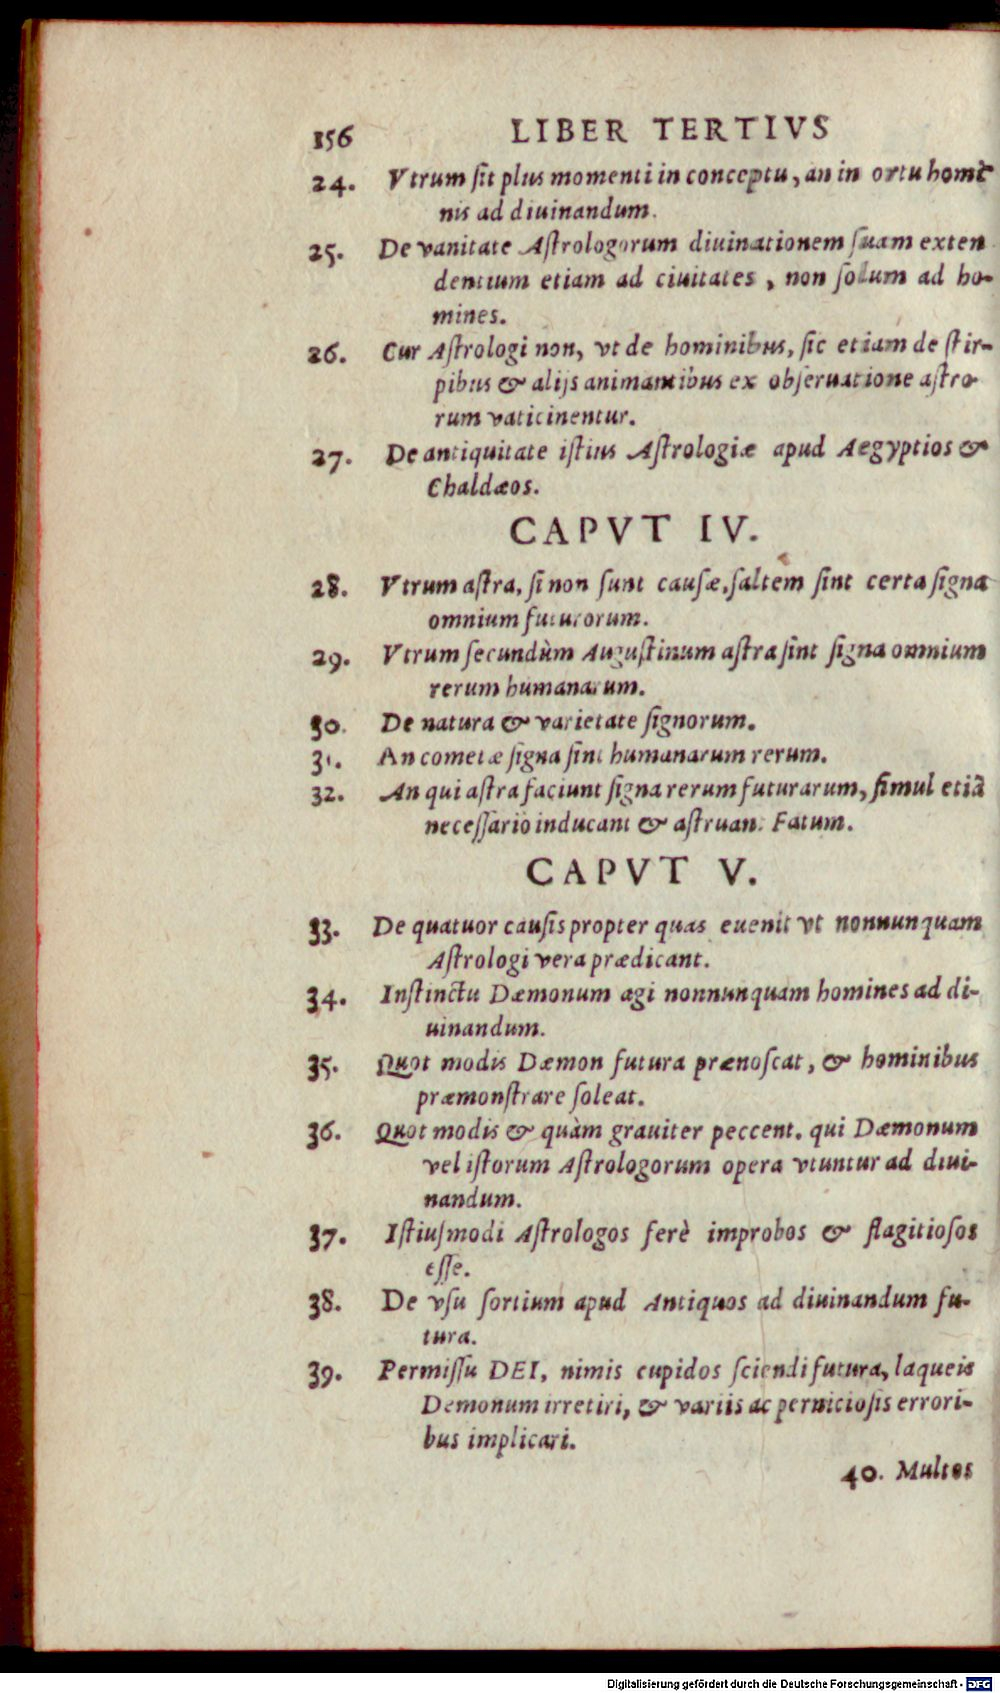 156 LIBER TERTIVS
24. Vtrum ſit plus momenti in conceptu, an in ortu homi-
nis ad diuinandum.
25. De vanitate Aſtrologorum diuinationem ſuam exten
dentium etiam ad ciuitates, non ſolum ad ho-
mines.
26. Cur Aſtrologi non, vt de hominibus, ſic etiam de ſtir-
pibus & alijs animantibus ex obſeruatione aſtro-
rum vaticinentur.
27. De antiquitate iſtius Aſtrologiæ apud Aegyptios &
Chaldæos.
CAPVT IV.
28. Vtrum aſtra, ſi non ſunt cauſæ, ſaltem ſint certa ſigna
omnium futurorum.
29. Vtrum ſecundùm Auguſtinum aſtra ſint ſigna omnium
rerum humanarum.
30. De natura & varietate ſignorum.
31. An cometæ ſigna ſint humanarum rerum.
32. An qui aſtra faciunt ſigna rerum futurarum, ſimul etiã
neceſſario inducant & aſtruant Fatum.
CAPVT V.
33. De quatuor cauſis propter quas euenit vt nonnunquam
Aſtrologi vera prædicant.
34. Inſtinctu Dæmonum agi nonnunquam homines ad di-
uinandum.
35. Quot modis Dæmon futura prænoſcat, & hominibus
præmonſtrare ſoleat.
36. Quot modis & quàm grauiter peccent. qui Dæmonum
vel iſtorum Aſtrologorum opera vtuntur ad diui-
nandum.
37. Iſtiuſmodi Aſtrologos ferè improbos & flagitioſos
eſſe.
38. De vſu ſortium apud Antiquos ad diuinandum fu-
tura.
39. Permiſſu DEI, nimis cupidos ſciendi futura, laqueis
Demonum irretiri, & variis ac pernicioſis errori-
bus implicari.
40. Multos
Digitalisierung gefördert durch die Deutsche Forschungsgemeinschaft - DFG